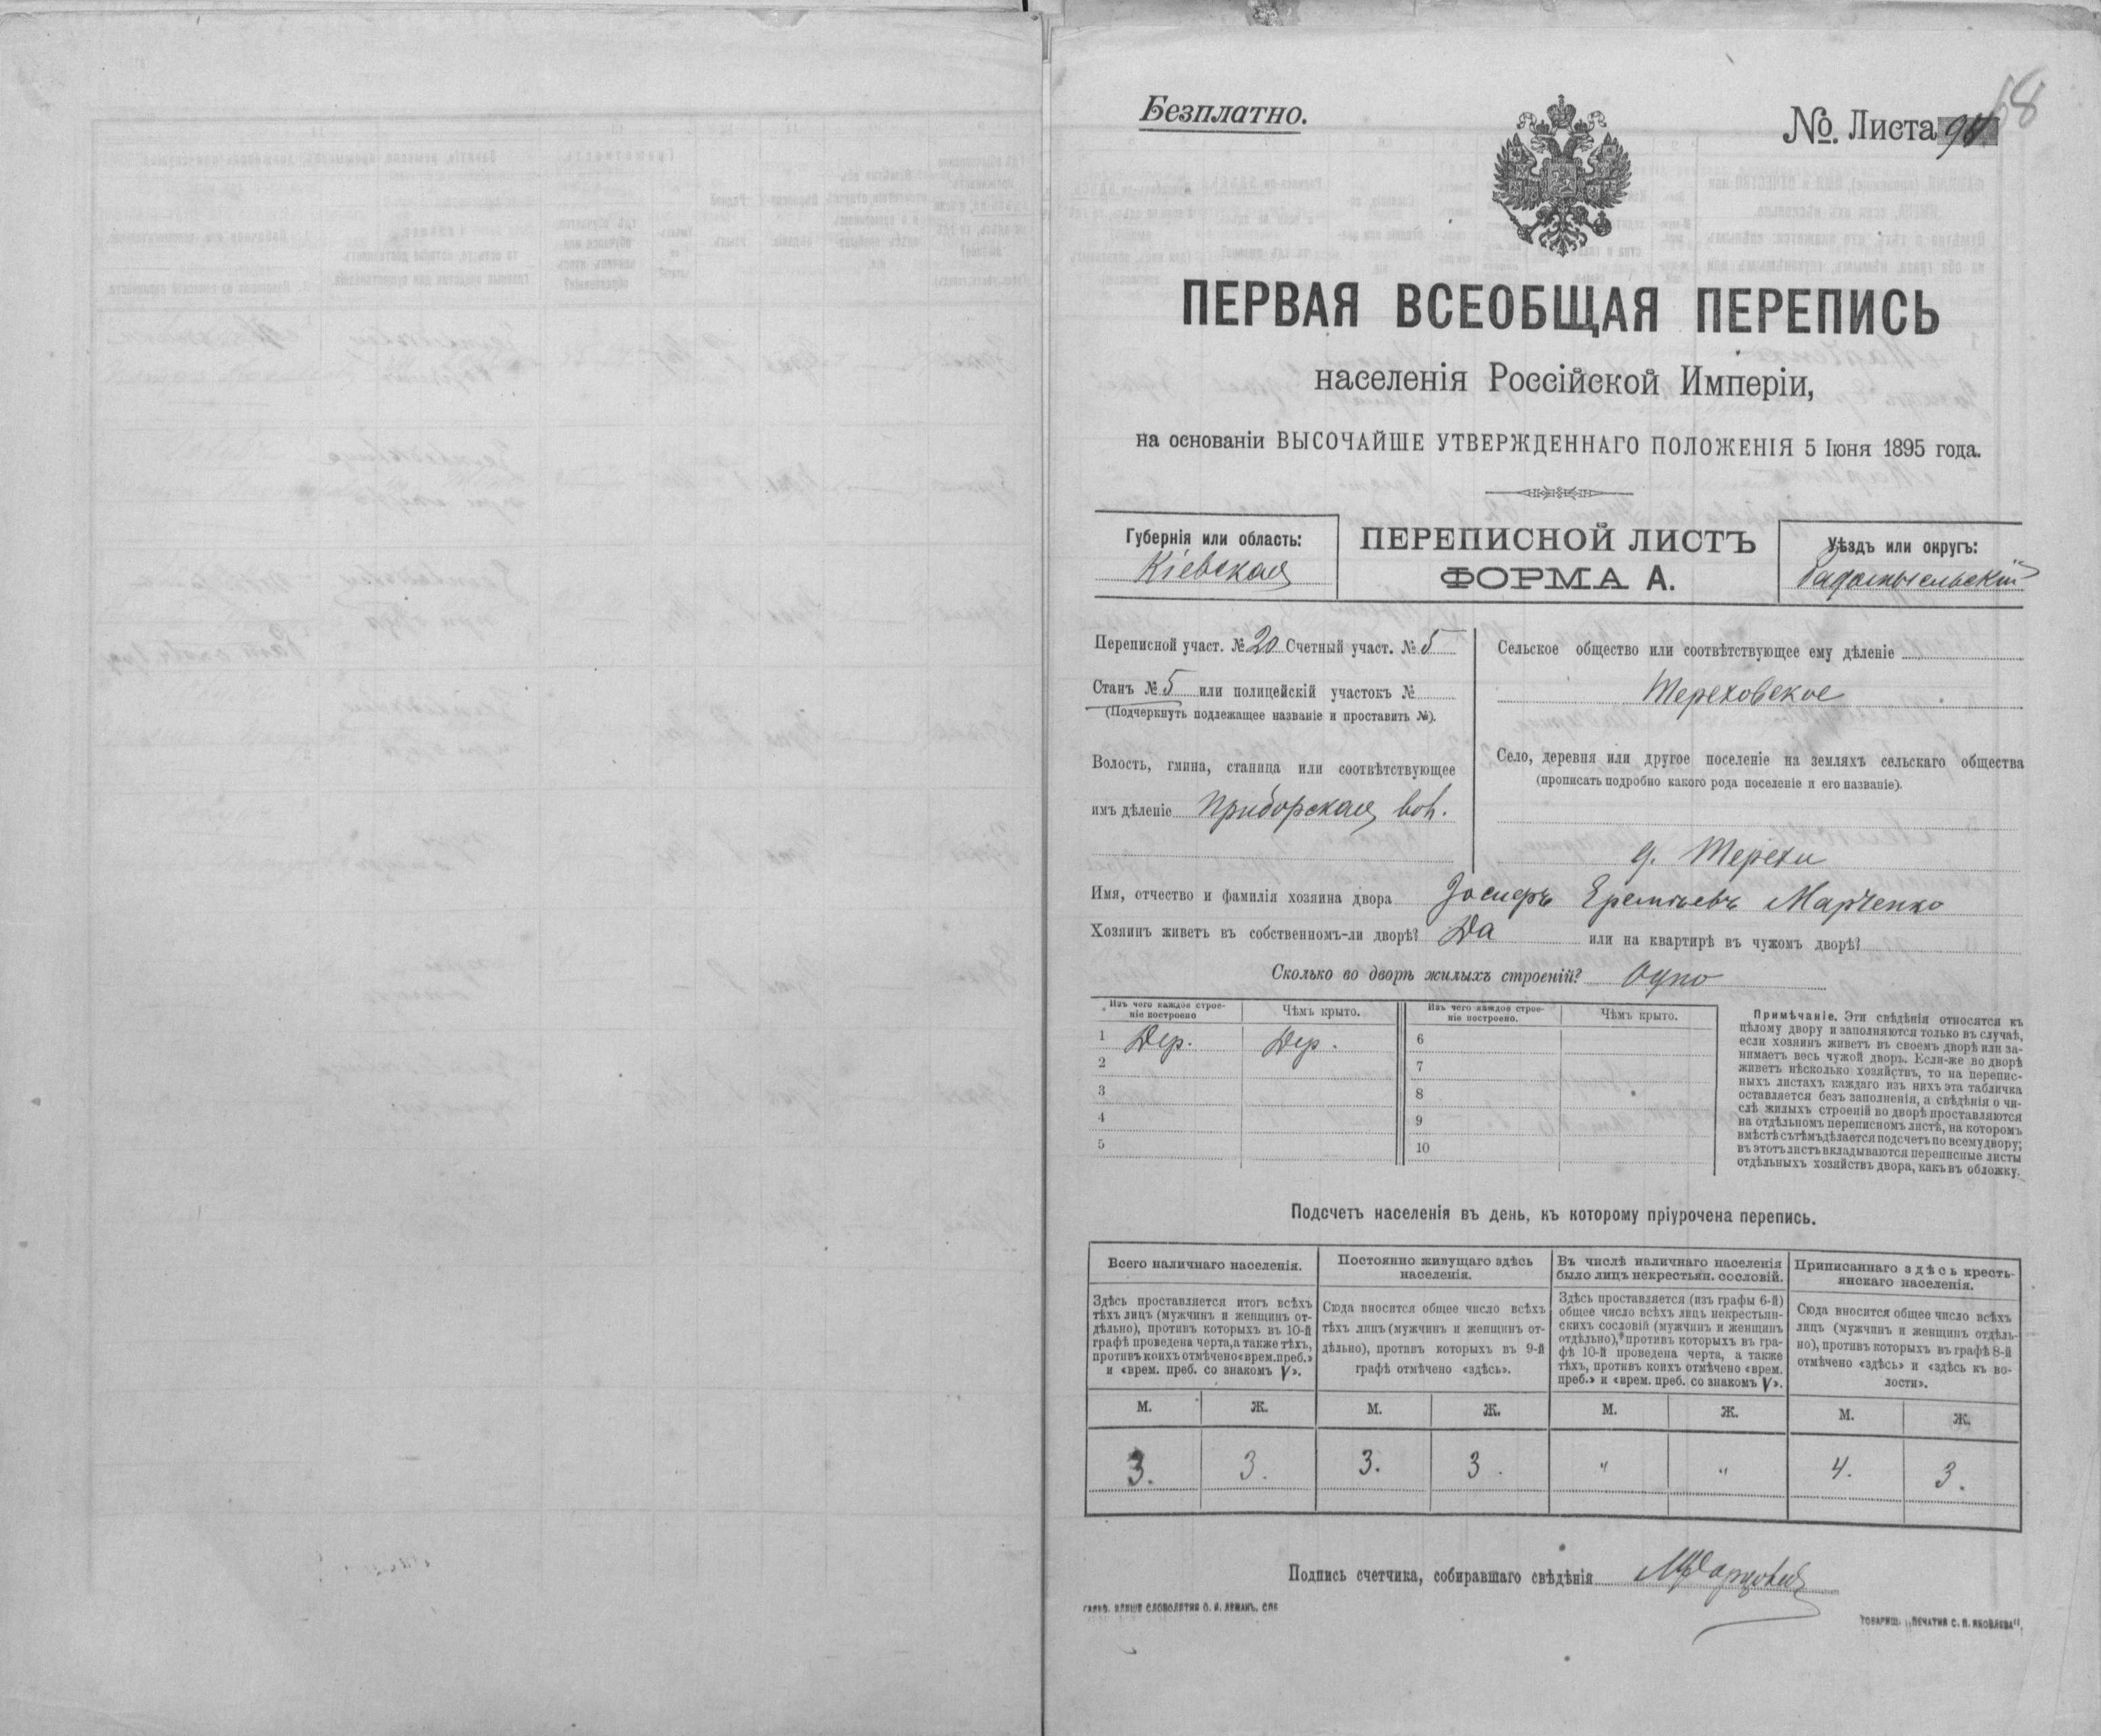 68
Безплатно.
№. Листа 94.
ПЕРВАЯ ВСЕОБЩАЯ ПЕРЕПИСЬ
населенія Россійской Имперіи,
на основаніи ВЫСОЧАЙШЕ УТВЕРЖДЕННАГО ПОЛОЖЕНІЯ 5 Іюня 1895 года.
Губернія или область:
Кіевская
ПЕРЕПИСНОЙ ЛИСТЪ
ФОРМА А.
Уѣздъ или округъ:
Радомысльскій
Переписной участ. № 20 Счетный участ. № 5
Станъ № 5 или полицейскій участокъ №
(Подчеркнуть подлежащее названіе и проставить №).
Волость, гмина, станица или соотвѣтствующее
имъ дѣленіе Приборская вол.
Сельское общество или соотвѣтствующее ему дѣленіе
Тереховское
Село, деревня или другое поселеніе на земляхъ сельскаго общества
(прописать подробно какого рода поселеніе и его названіе).
д. Терехи
Имя, отчество и фамилія хозяина двора Іосифъ Еремѣевъ Марченко
Хозяинъ живетъ въ собственномъ-ли дворѣ? Да или на квартирѣ въ чужомъ дворѣ?
Сколько во дворѣ жилыхъ строеній? Одно
Изъ чего каждое строе-
ніе построено
Чѣмъ крыто.
Изъ чего каждое строе-
ніе построено.
Чѣмъ крыто.
1 Дер. Дер. 6
2 7
3 8
4 9
5 10
Примѣчаніе. Эти свѣдѣнія относятся къ
цѣлому двору и заполняются только въ случаѣ,
если хозяинъ живетъ въ своемъ дворѣ или за-
нимаетъ весь чужой дворъ. Если-же во дворѣ
живетъ нѣсколько хозяйствъ, то на перепис-
ныхъ листахъ каждаго изъ нихъ эта табличка
оставляется безъ заполненія, а свѣдѣнія о чи-
слѣ жилыхъ строеній во дворѣ проставляются
на отдѣльномъ переписномъ листѣ, на которомъ
вмѣстѣ съ тѣмъ дѣлается подсчетъ по всему двору;
въ этотъ листъ вкладываются переписные листы
отдѣльныхъ хозяйствъ двора, какъ въ обложку.
Подсчетъ населенія въ день, къ которому пріурочена перепись.
Всего наличнаго населенія.
Здѣсь проставляется итогъ всѣхъ
тѣхъ лицъ (мужчинъ и женщинъ от-
дѣльно), противъ которыхъ въ 10-й
графѣ проведена черта, а также тѣхъ,
противъ коихъ отмѣчено «врем. преб.»
и «врем. преб. со знакомъ V».
Постоянно живущаго здѣсь
населенія.
Сюда вносится общее число всѣхъ
тѣхъ лицъ (мужчинъ и женщинъ от-
дѣльно), противъ которыхъ въ 9-й
графѣ отмѣчено «здѣсь».
Въ числѣ наличнаго населенія
было лицъ некрестьян. сословій.
Здѣсь проставляется (изъ графы 6-й)
общее число всѣхъ лицъ некрестьян-
скихъ сословій (мужчинъ и женщинъ
отдѣльно), противъ которыхъ въ гра-
фѣ 10-й проведена черта, а также
тѣхъ, противъ коихъ отмѣчено «врем.
преб.» и «врем. преб. со знакомъ V».
Приписаннаго здѣсь кресть-
янскаго населенія.
Сюда вносится общее число всѣхъ
лицъ (мужчинъ и женщинъ отдѣль-
но), противъ которыхъ въ графѣ 8-й
отмѣчено «здѣсь» и «здѣсь къ во-
лости».
М. Ж. М. Ж. М. Ж. М. Ж.
3. 3. 3. 3. " " 4. 3.
Подпись счетчика, собиравшаго свѣдѣнія
ТОВАРИЩ. „ПЕЧАТНЯ С. П. ЯКОВЛЕВА".